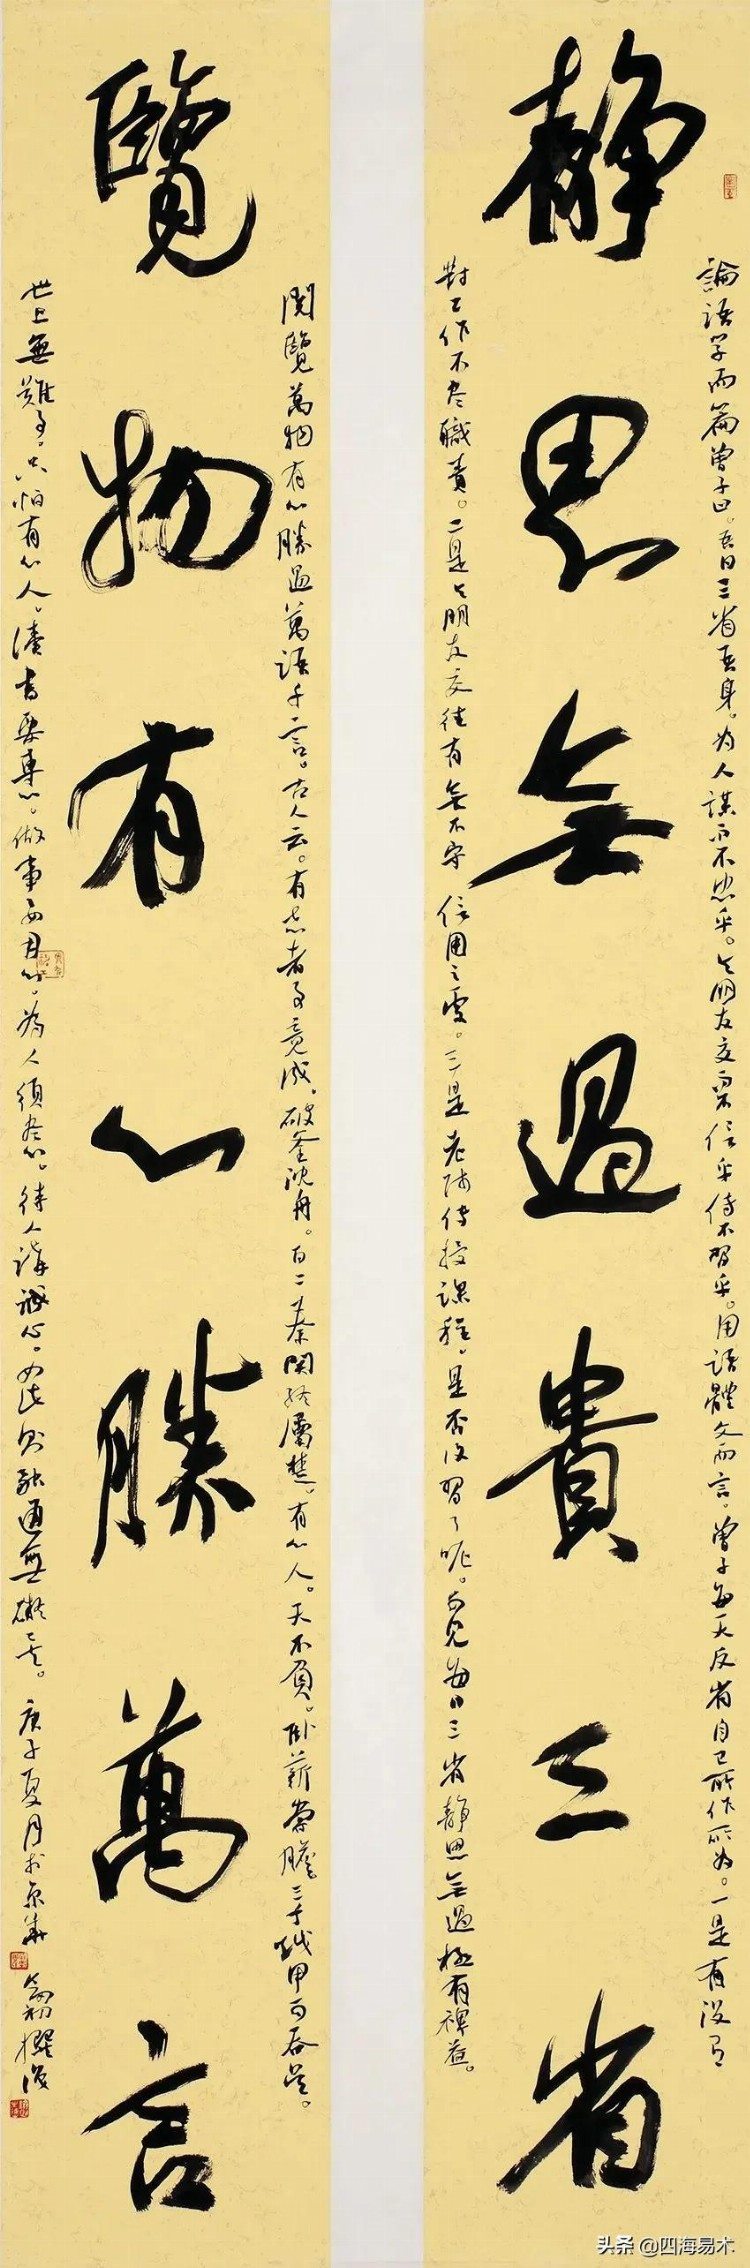 論語学而篇曾子曰。吾日三省吾身。为人謀而不忠乎。与朋友交而不信乎。傳不習乎。用語體文而言。曾子每天反省自己所作所为。一是有没有
靜思無過貴三省
對工作不尽職責。二是与朋友交往有無不守信用之處。三是老师傳授課程。是否復習了呢。可見每日三省靜思無過極有裨益。
閱覽萬物有心勝過萬語千言。古人云。有志者事竟成。破釜沈舟。百二秦関終屬楚。有心人。天不負。卧薪嘗膽三千越甲可吞吳。
覽物有心勝萬言
世上無難事。只怕有心人。讀書要專心。做事要用心。為人須尽心。待人講誠心。如此則融通無礙矣。庚子夏月於京華
头条 @四海易术